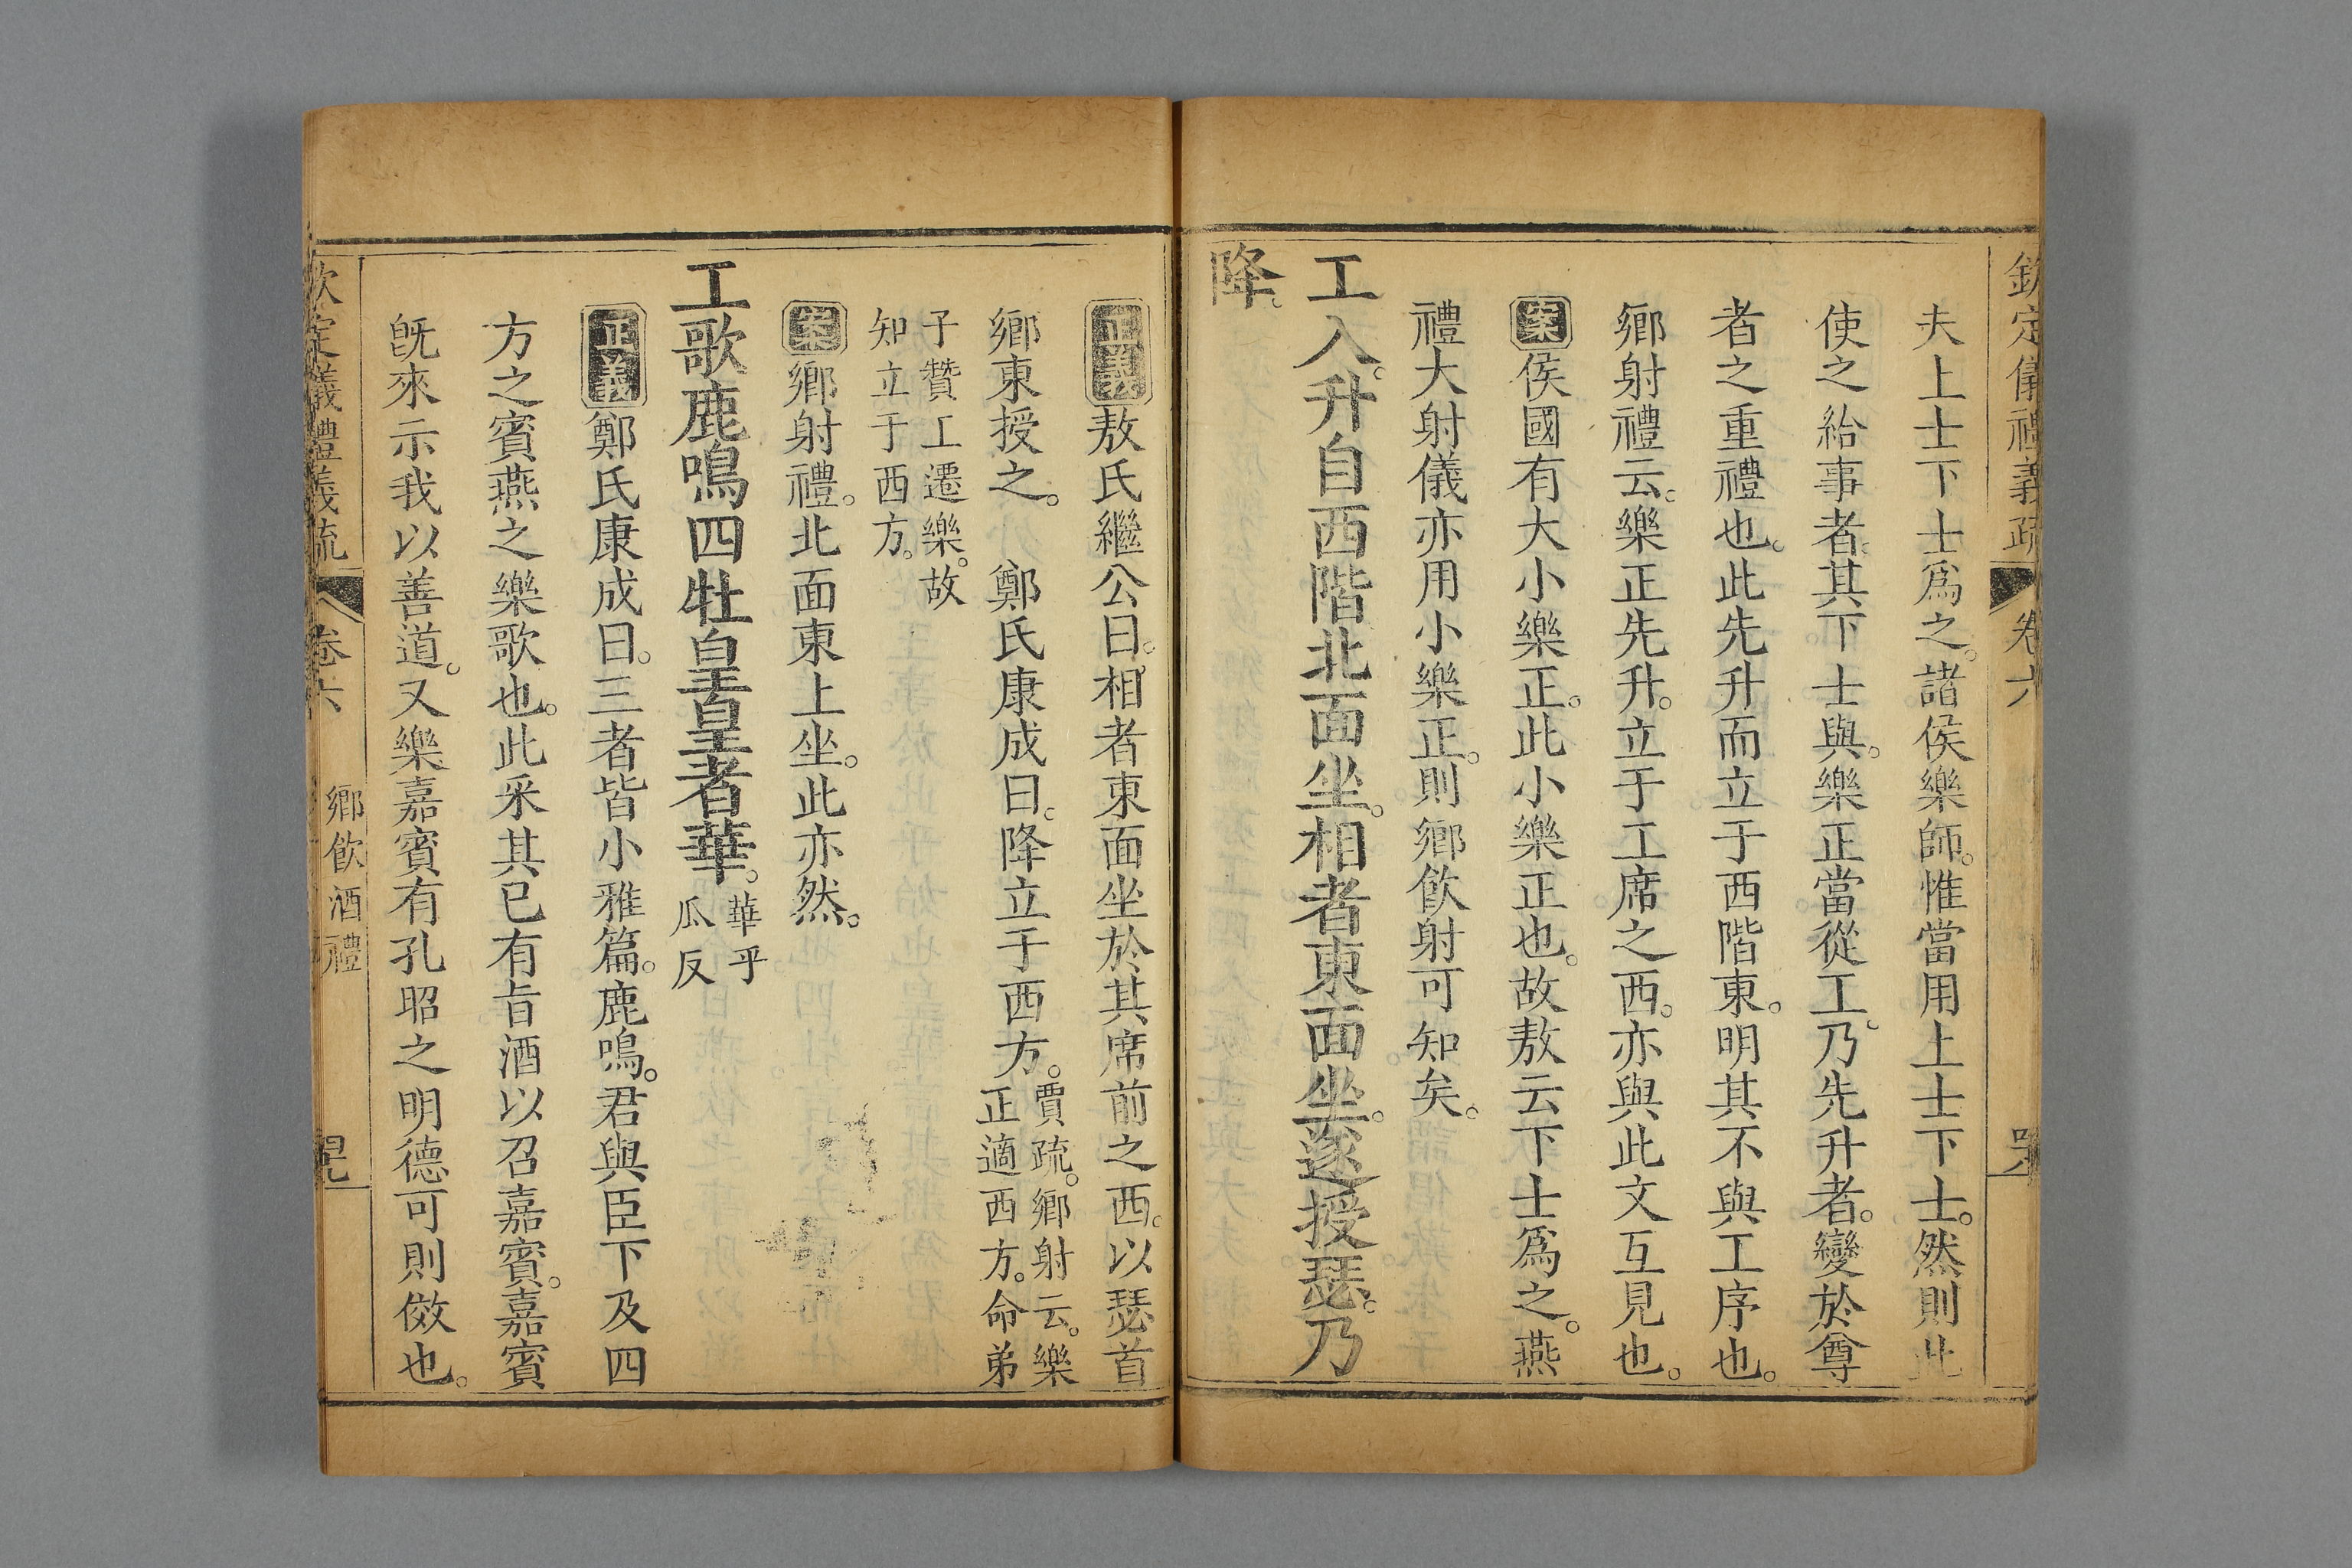 欽定儀禮義疏 卷六
夫上士下士爲之。諸侯樂師。惟當用上士下士。然則此
使之給事者。其下士與。樂正當從工。乃先升者。變於尊
者之重禮也。此先升而立于西階東。明其不與工序也。
鄉射禮云。樂正先升。立于工席之西。亦與此文互見也。
案侯國有大小樂正。此小樂正也。故敖云下士爲之。燕
禮大射儀亦用小樂正。則鄉飲射可知矣。
工入。升自西階北面坐。相者東面坐。遂授瑟。乃
降。
正義敖氏繼公曰。相者東面坐於其席前之西。以瑟首
鄉東授之。 鄭氏康成曰。降立于西方。賈疏。鄉射云。樂
正適西方。命弟
子贊工遷樂。故
知立于西方。
案鄉射禮。北面東上坐。此亦然。
工歌鹿鳴四牡皇皇者華。華乎
瓜反
正義鄭氏康成曰。三者皆小雅篇。鹿鳴。君與臣下及四
方之賓燕之樂歌也。此采其已有旨酒以召嘉賓。嘉賓
旣來示我以善道。又樂嘉賓有孔昭之明德可則傚也。
欽定儀禮義疏 卷六 鄉飲酒禮